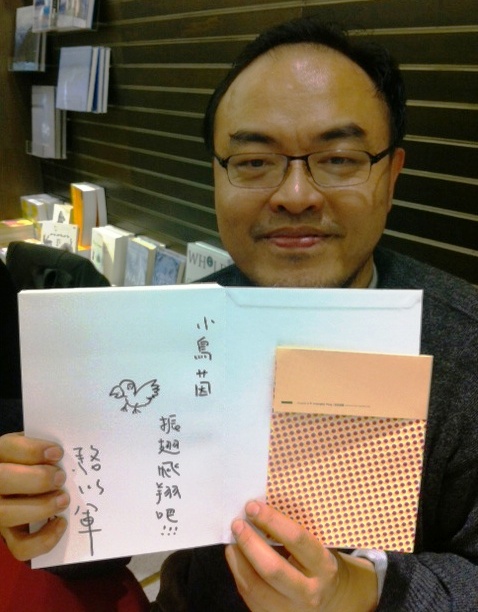 小鳥茵
振翅飛翔吧!!!
駱以軍
WHOLE